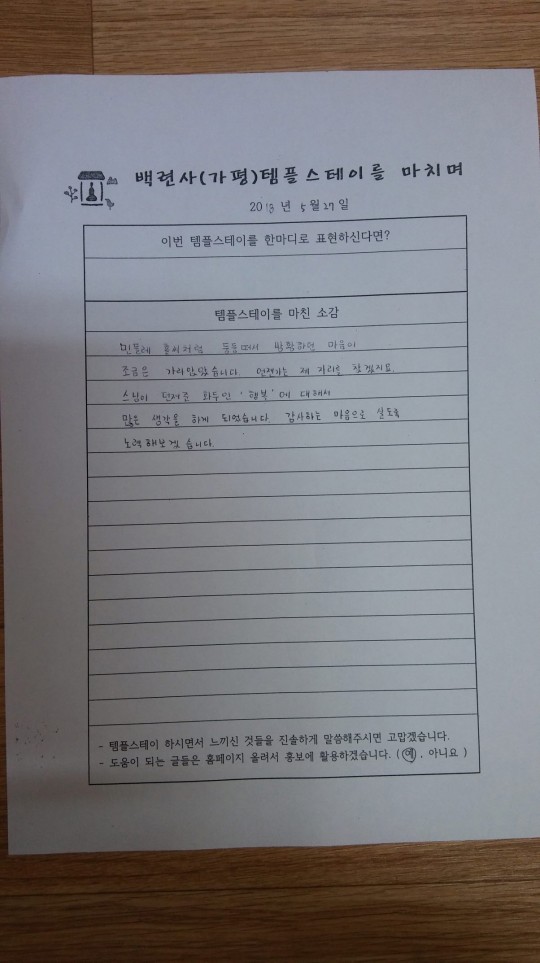 백련사(가평)템플스테이를 마치며
2013 년 5 월 27 일
이번 템플스테이를 한마디로 표현하신다면?
템플스테이를 마친 소감
민들레 홀씨처럼 둥둥떠서 방황하던 마음이
조금은 가라앉았습니다. 언젠가는 제 자리를 찾겠지요.
스님이 던져준 화두인 '행복'에 대해서
많은 생각을 하게 되었습니다. 감사하는 마음으로 살도록
노력해보겠습니다.
- 템플스테이 하시면서 느끼신 것들을 진솔하게 말씀해주시면 고맙겠습니다.
- 도움이 되는 글들은 홈페이지 올려서 홍보에 활용하겠습니다. (예, 아니요 )